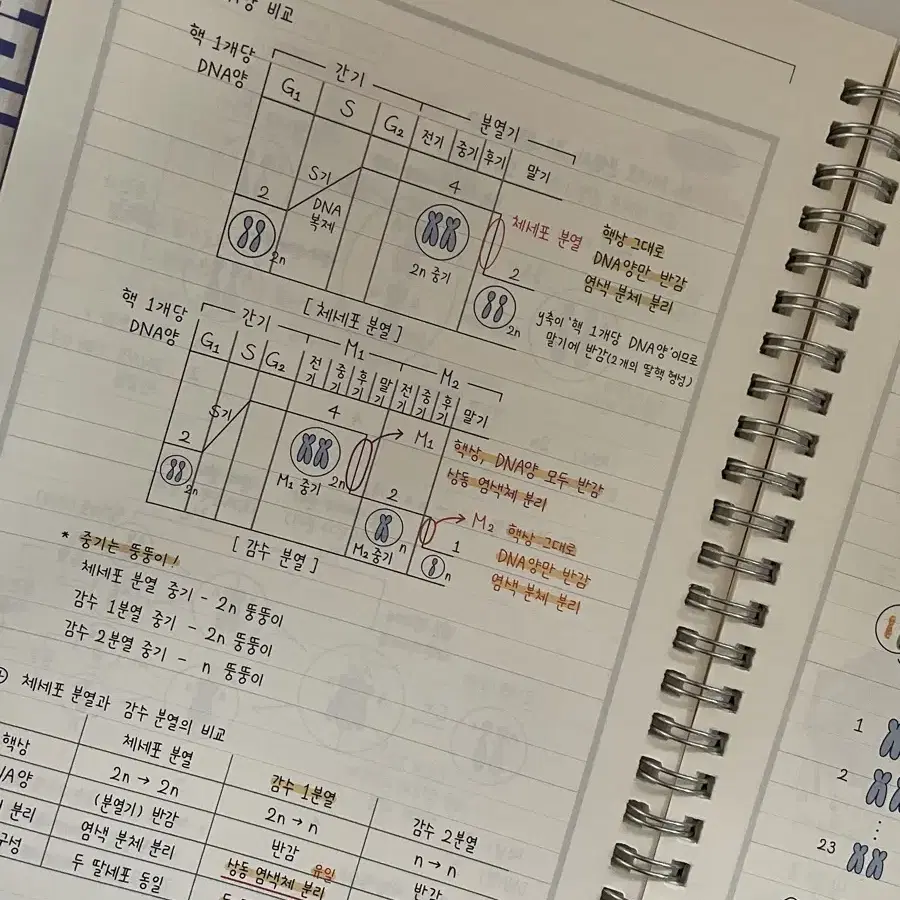 비교
핵 1개당
DNA양
간기
분열기
G₁
S
G₂
전기
중기
후기
말기
2
S기
DNA
복제
4
2n
2n 중기
체세포 분열
핵상 그대로
DNA양만 반감
염색 분체 분리
2
2n
[ 체세포 분열 ]
y축이 '핵 1개당 DNA양'이므로
말기에 반감(2개의 딸핵 형성)
핵 1개당
DNA양
간기
M₁
M₂
G₁
S
G₂
전기
중기
후기
말기
전기
중기
후기
말기
2
S기
4
2n
M₁ 중기
2n
M₁
핵상, DNA양 모두 반감
상동 염색체 분리
2
n
M₂ 중기
M₂
핵상 그대로
DNA양만 반감
염색 분체 분리
1
n
[ 감수 분열 ]
* 중기는 뚱뚱이!
체세포 분열 중기 - 2n 뚱뚱이
감수 1분열 중기 - 2n 뚱뚱이
감수 2분열 중기 - n 뚱뚱이
체세포 분열과 감수 분열의 비교
체세포 분열
감수 1분열
감수 2분열
핵상
2n → 2n
2n → n
n → n
(분열기) 반감
반감
반감
분리
염색 분체 분리
유일
상동 염색체 분리
구성
두 딸세포 동일
1
2
⋮
23